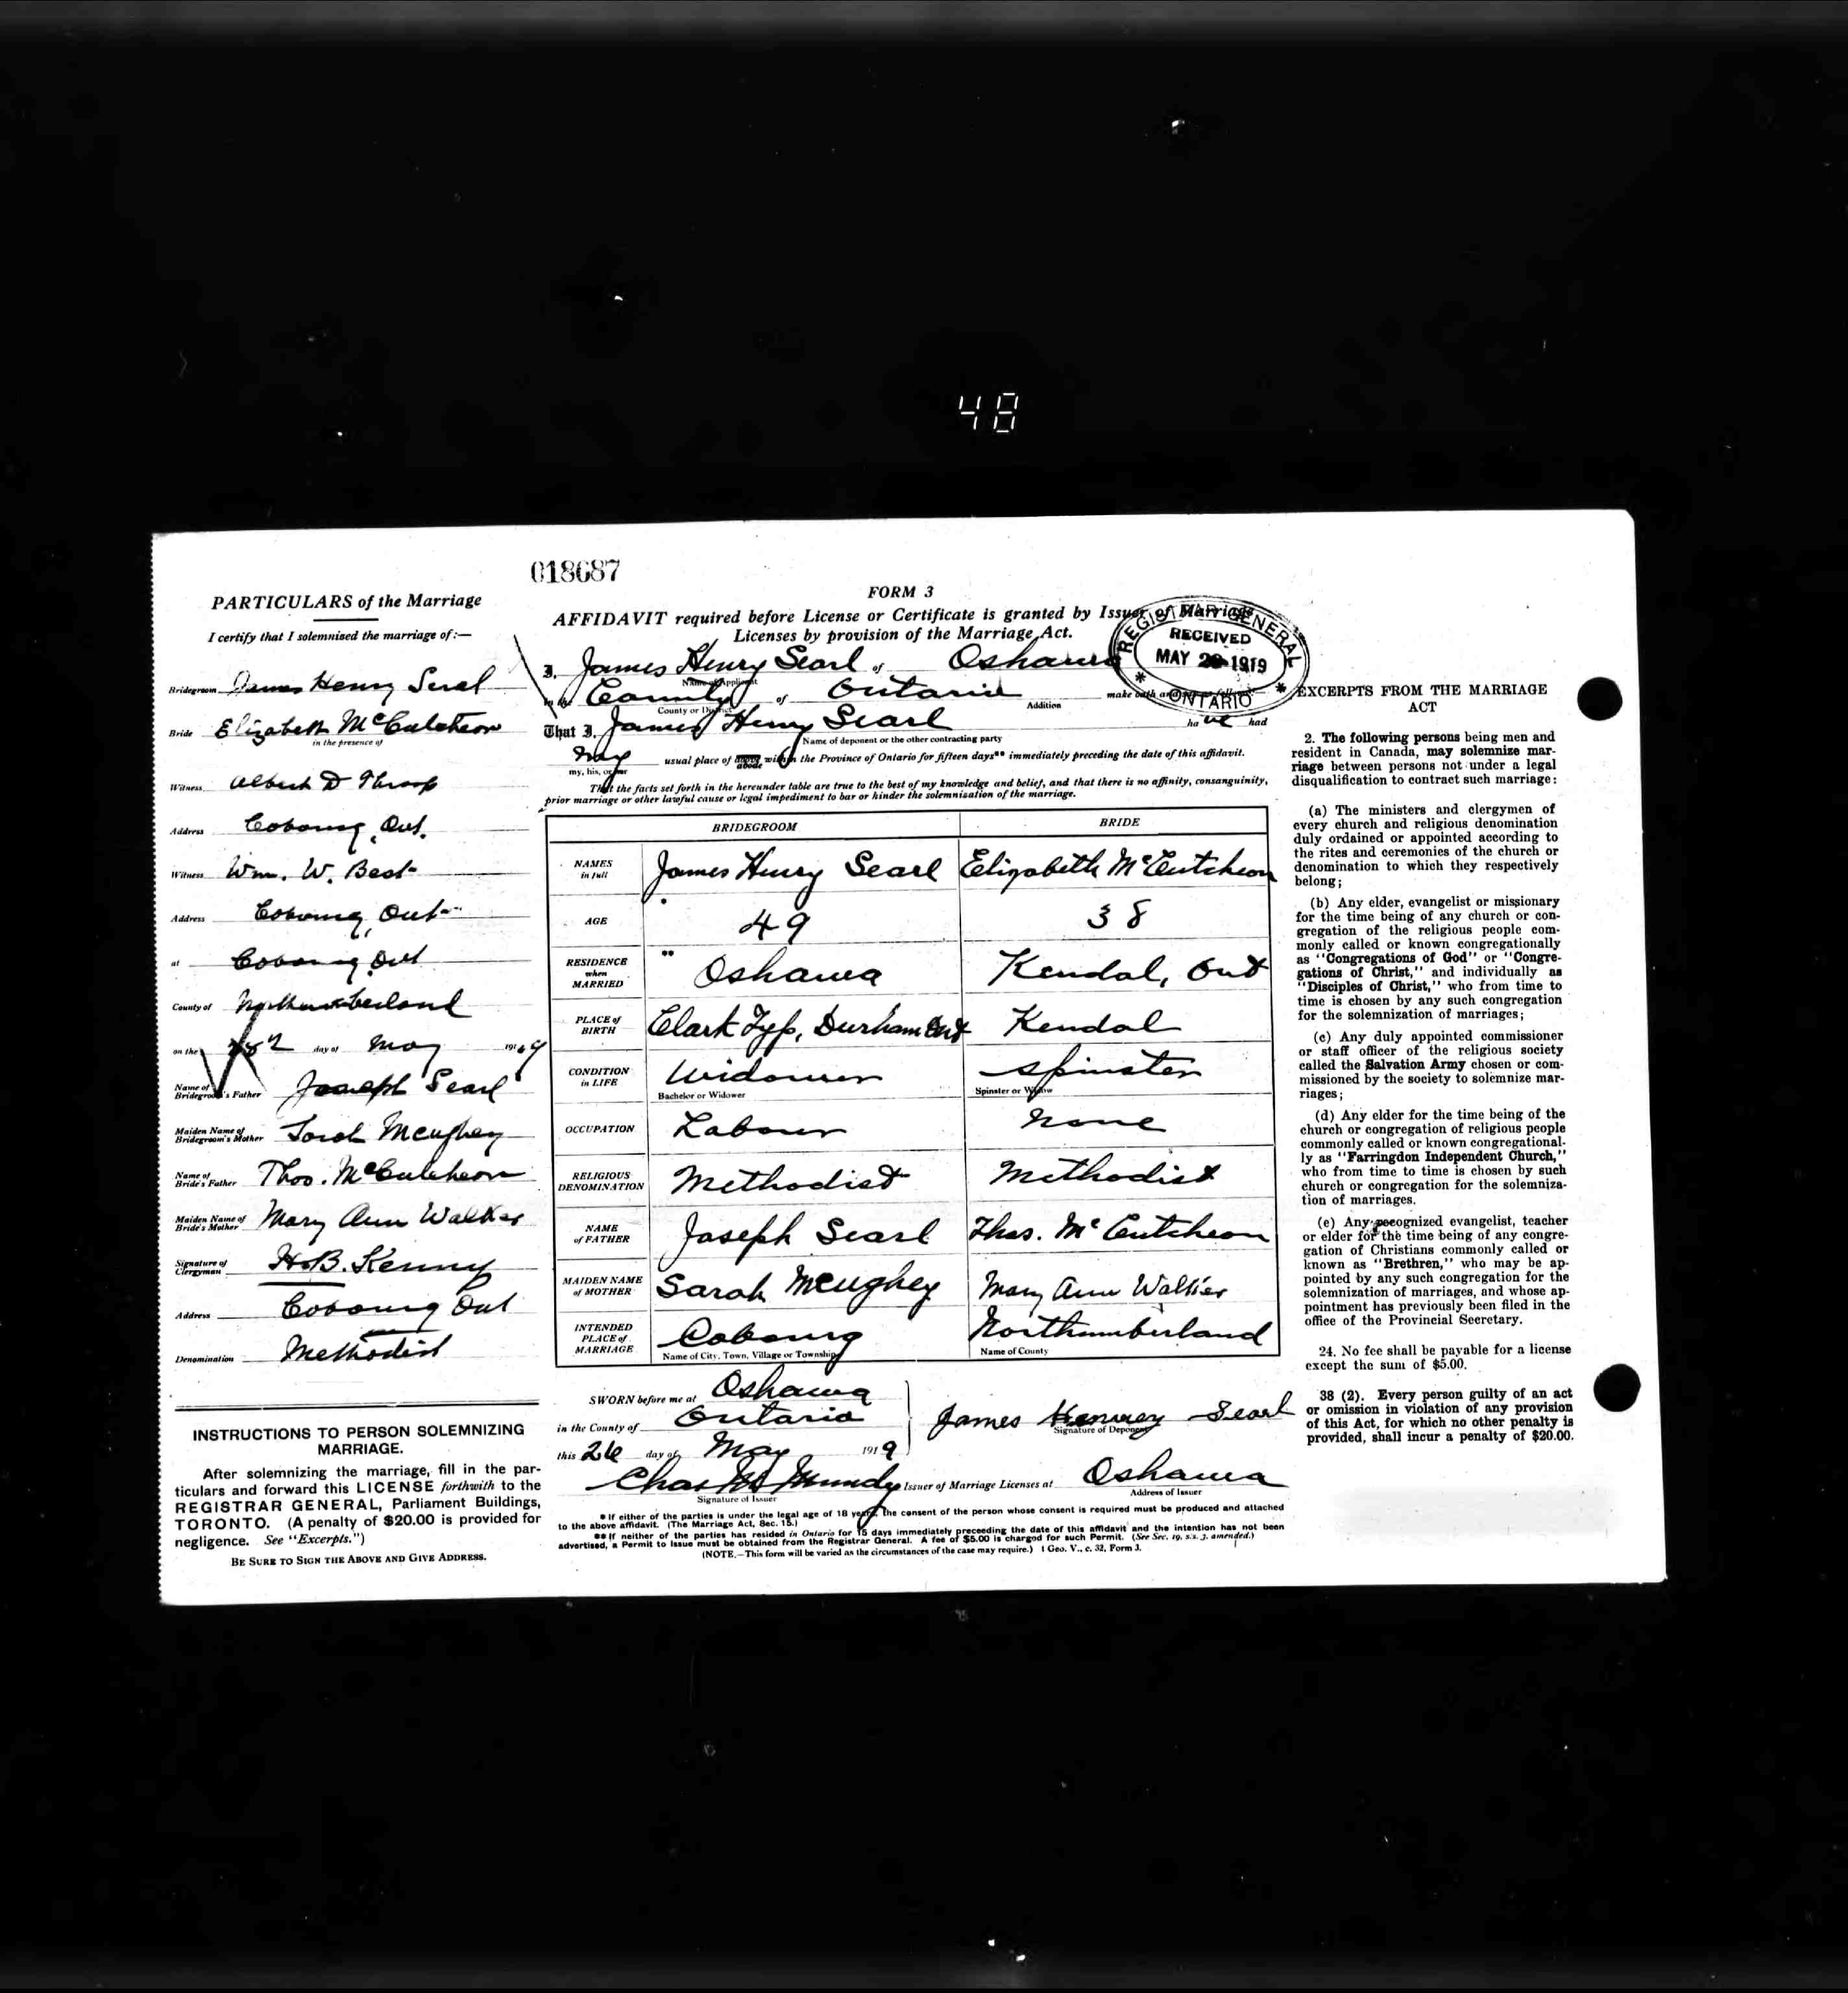 48
018687
PARTICULARS of the Marriage
I certify that I solemnised the marriage of:—
Bridegroom James Henry Serl
Bride Elizabeth McCutcheon
in the presence of
Witness Albert D Throop
Address Cobourg, Ont.
Witness Wm. W. Best
Address Cobourg, Ont.
at Cobourg Ont
County of Northumberland
on the day of May 1919
Name of Bridegroom's Father Joseph Searl
Maiden Name of Bridegroom's Mother Sarah McUghey
Name of Bride's Father Thos. McCutcheon
Maiden Name of Bride's Mother Mary Ann Walker
Signature of Clergyman H.B. Kenny
Address Cobourg Ont
Denomination Methodist
INSTRUCTIONS TO PERSON SOLEMNIZING
MARRIAGE.
After solemnizing the marriage, fill in the par-
ticulars and forward this LICENSE forthwith to the
REGISTRAR GENERAL, Parliament Buildings,
TORONTO. (A penalty of $20.00 is provided for
negligence. See "Excerpts.")
BE SURE TO SIGN THE ABOVE AND GIVE ADDRESS.
FORM 3
AFFIDAVIT required before License or Certificate is granted by Issuer of Marriage
Licenses by provision of the Marriage Act.
REGISTRAR GENERAL
RECEIVED
MAY 1919
* ONTARIO *
I, James Henry Searl of Oshawa
Name of Applicant
in the County of Ontario make oath and say as follows:—
County or District Addition
That I, James Henry Searl have had
Name of deponent or the other contracting party
my usual place of abode within the Province of Ontario for fifteen days** immediately preceding the date of this affidavit.
my, his, or her
That the facts set forth in the hereunder table are true to the best of my knowledge and belief, and that there is no affinity, consanguinity,
prior marriage or other lawful cause or legal impediment to bar or hinder the solemnisation of the marriage.
BRIDEGROOM BRIDE
NAMES in full James Henry Searl Elizabeth McCutcheon
AGE 49 38
RESIDENCE when MARRIED Oshawa Kendal, Ont
PLACE of BIRTH Clark Typ, Durham Ont Kendal
CONDITION in LIFE Widower Spinster
Bachelor or Widower Spinster or Widow
OCCUPATION Labourer None
RELIGIOUS DENOMINATION Methodist Methodist
NAME of FATHER Joseph Searl Thos. McCutcheon
MAIDEN NAME of MOTHER Sarah McUghey Mary Ann Walker
INTENDED PLACE of MARRIAGE Cobourg Northumberland
Name of City, Town, Village or Township Name of County
SWORN before me at Oshawa
in the County of Ontario
James Henrey Searl
Signature of Deponent
this 26 day of May 1919
Chas M Mundy Issuer of Marriage Licenses at Oshawa
Signature of Issuer Address of Issuer
* If either of the parties is under the legal age of 18 years, the consent of the person whose consent is required must be produced and attached
to the above affidavit. (The Marriage Act, Sec. 15.)
** If neither of the parties has resided in Ontario for 15 days immediately preceeding the date of this affidavit and the intention has not been
advertised, a Permit to Issue must be obtained from the Registrar General. A fee of $5.00 is charged for such Permit. (See Sec. 19, s.s. 3. amended.)
(NOTE.—This form will be varied as the circumstances of the case may require.) 1 Geo. V., c. 32, Form 3.
EXCERPTS FROM THE MARRIAGE
ACT
2. The following persons being men and
resident in Canada, may solemnize mar-
riage between persons not under a legal
disqualification to contract such marriage:
(a) The ministers and clergymen of
every church and religious denomination
duly ordained or appointed according to
the rites and ceremonies of the church or
denomination to which they respectively
belong;
(b) Any elder, evangelist or missionary
for the time being of any church or con-
gregation of the religious people com-
monly called or known congregationally
as "Congregations of God" or "Congre-
gations of Christ," and individually as
"Disciples of Christ," who from time to
time is chosen by any such congregation
for the solemnization of marriages;
(c) Any duly appointed commissioner
or staff officer of the religious society
called the Salvation Army chosen or com-
missioned by the society to solemnize mar-
riages;
(d) Any elder for the time being of the
church or congregation of religious people
commonly called or known congregational-
ly as "Farringdon Independent Church,"
who from time to time is chosen by such
church or congregation for the solemniza-
tion of marriages.
(e) Any recognized evangelist, teacher
or elder for the time being of any congre-
gation of Christians commonly called or
known as "Brethren," who may be ap-
pointed by any such congregation for the
solemnization of marriages, and whose ap-
pointment has previously been filed in the
office of the Provincial Secretary.
24. No fee shall be payable for a license
except the sum of $5.00.
38 (2). Every person guilty of an act
or omission in violation of any provision
of this Act, for which no other penalty is
provided, shall incur a penalty of $20.00.